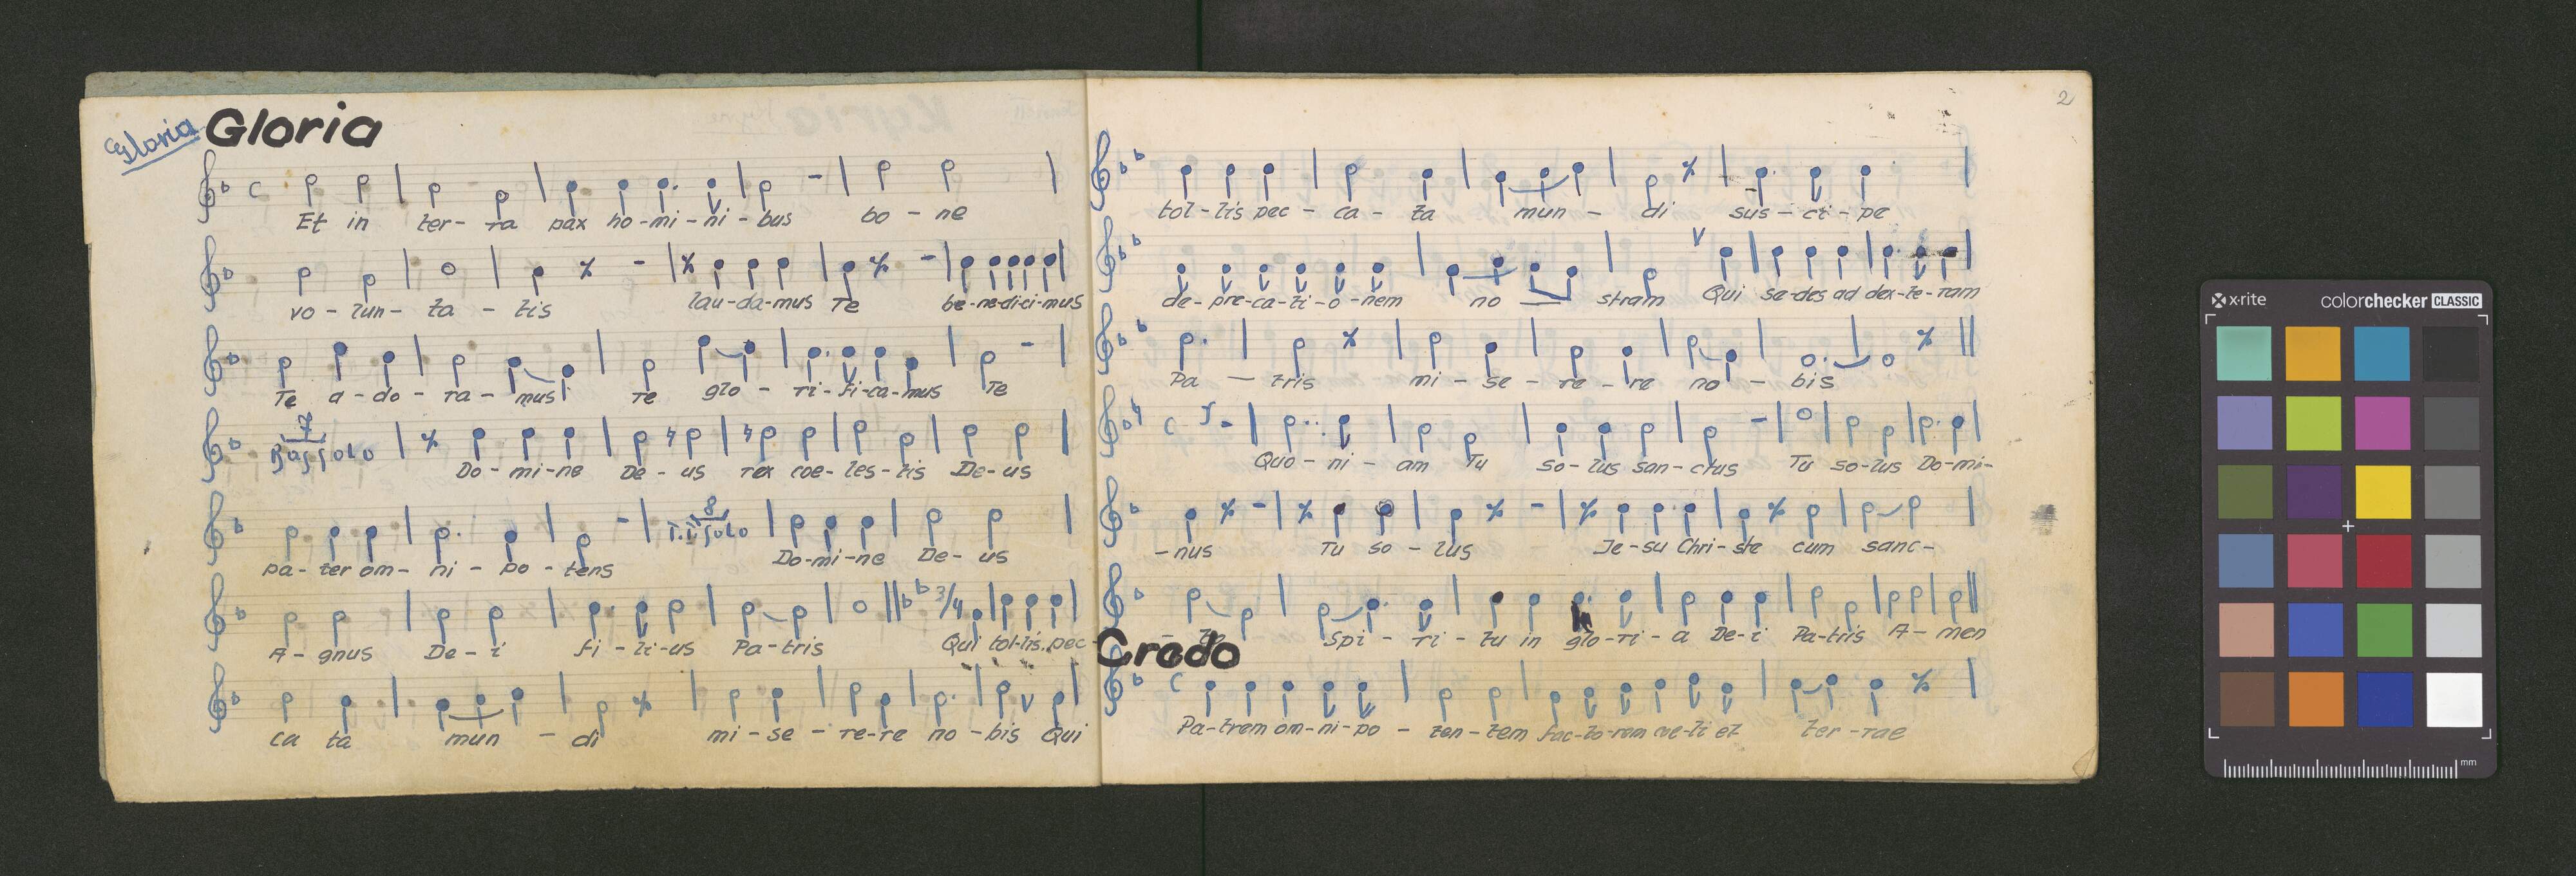 Gloria Gloria
Et in ter- ra pax ho-mi-ni-bus bo-ne
vo-lun-ta-tis lau-da-mus Te be-ne-di-ci-mus
Te a-do-ra-mus Te glo-ri-fi-ca-mus Te
7
Bassolo Do-mi-ne De-us rex coe-les-tis De-us
8
pa-ter om-ni-po-tens T.T. solo Do-mi-ne De-us
A-gnus De-i fi-li-us Pa-tris 3/4 Qui tol-lis pec-
ca ta mun-di mi-se-re-re no-bis Qui
2
tol-lis pec-ca-ta mun-di sus-ci-pe
de-pre-ca-ti-o-nem no-stram Qui se-des ad dex-te-ram
Pa-tris mi-se-re-re no-bis
Quo-ni-am Tu so-lus san-ctus Tu so-lus Do-mi-
-nus Tu so-lus Je-su Chri-ste cum sanc-
-to Spi-ri-tu in glo-ri-a De-i Pa-tris A-men
Credo
Pa-trem om-ni-po-ten-tem fac-to-rem coe-li et ter-rae
x-rite colorchecker CLASSIC
mm